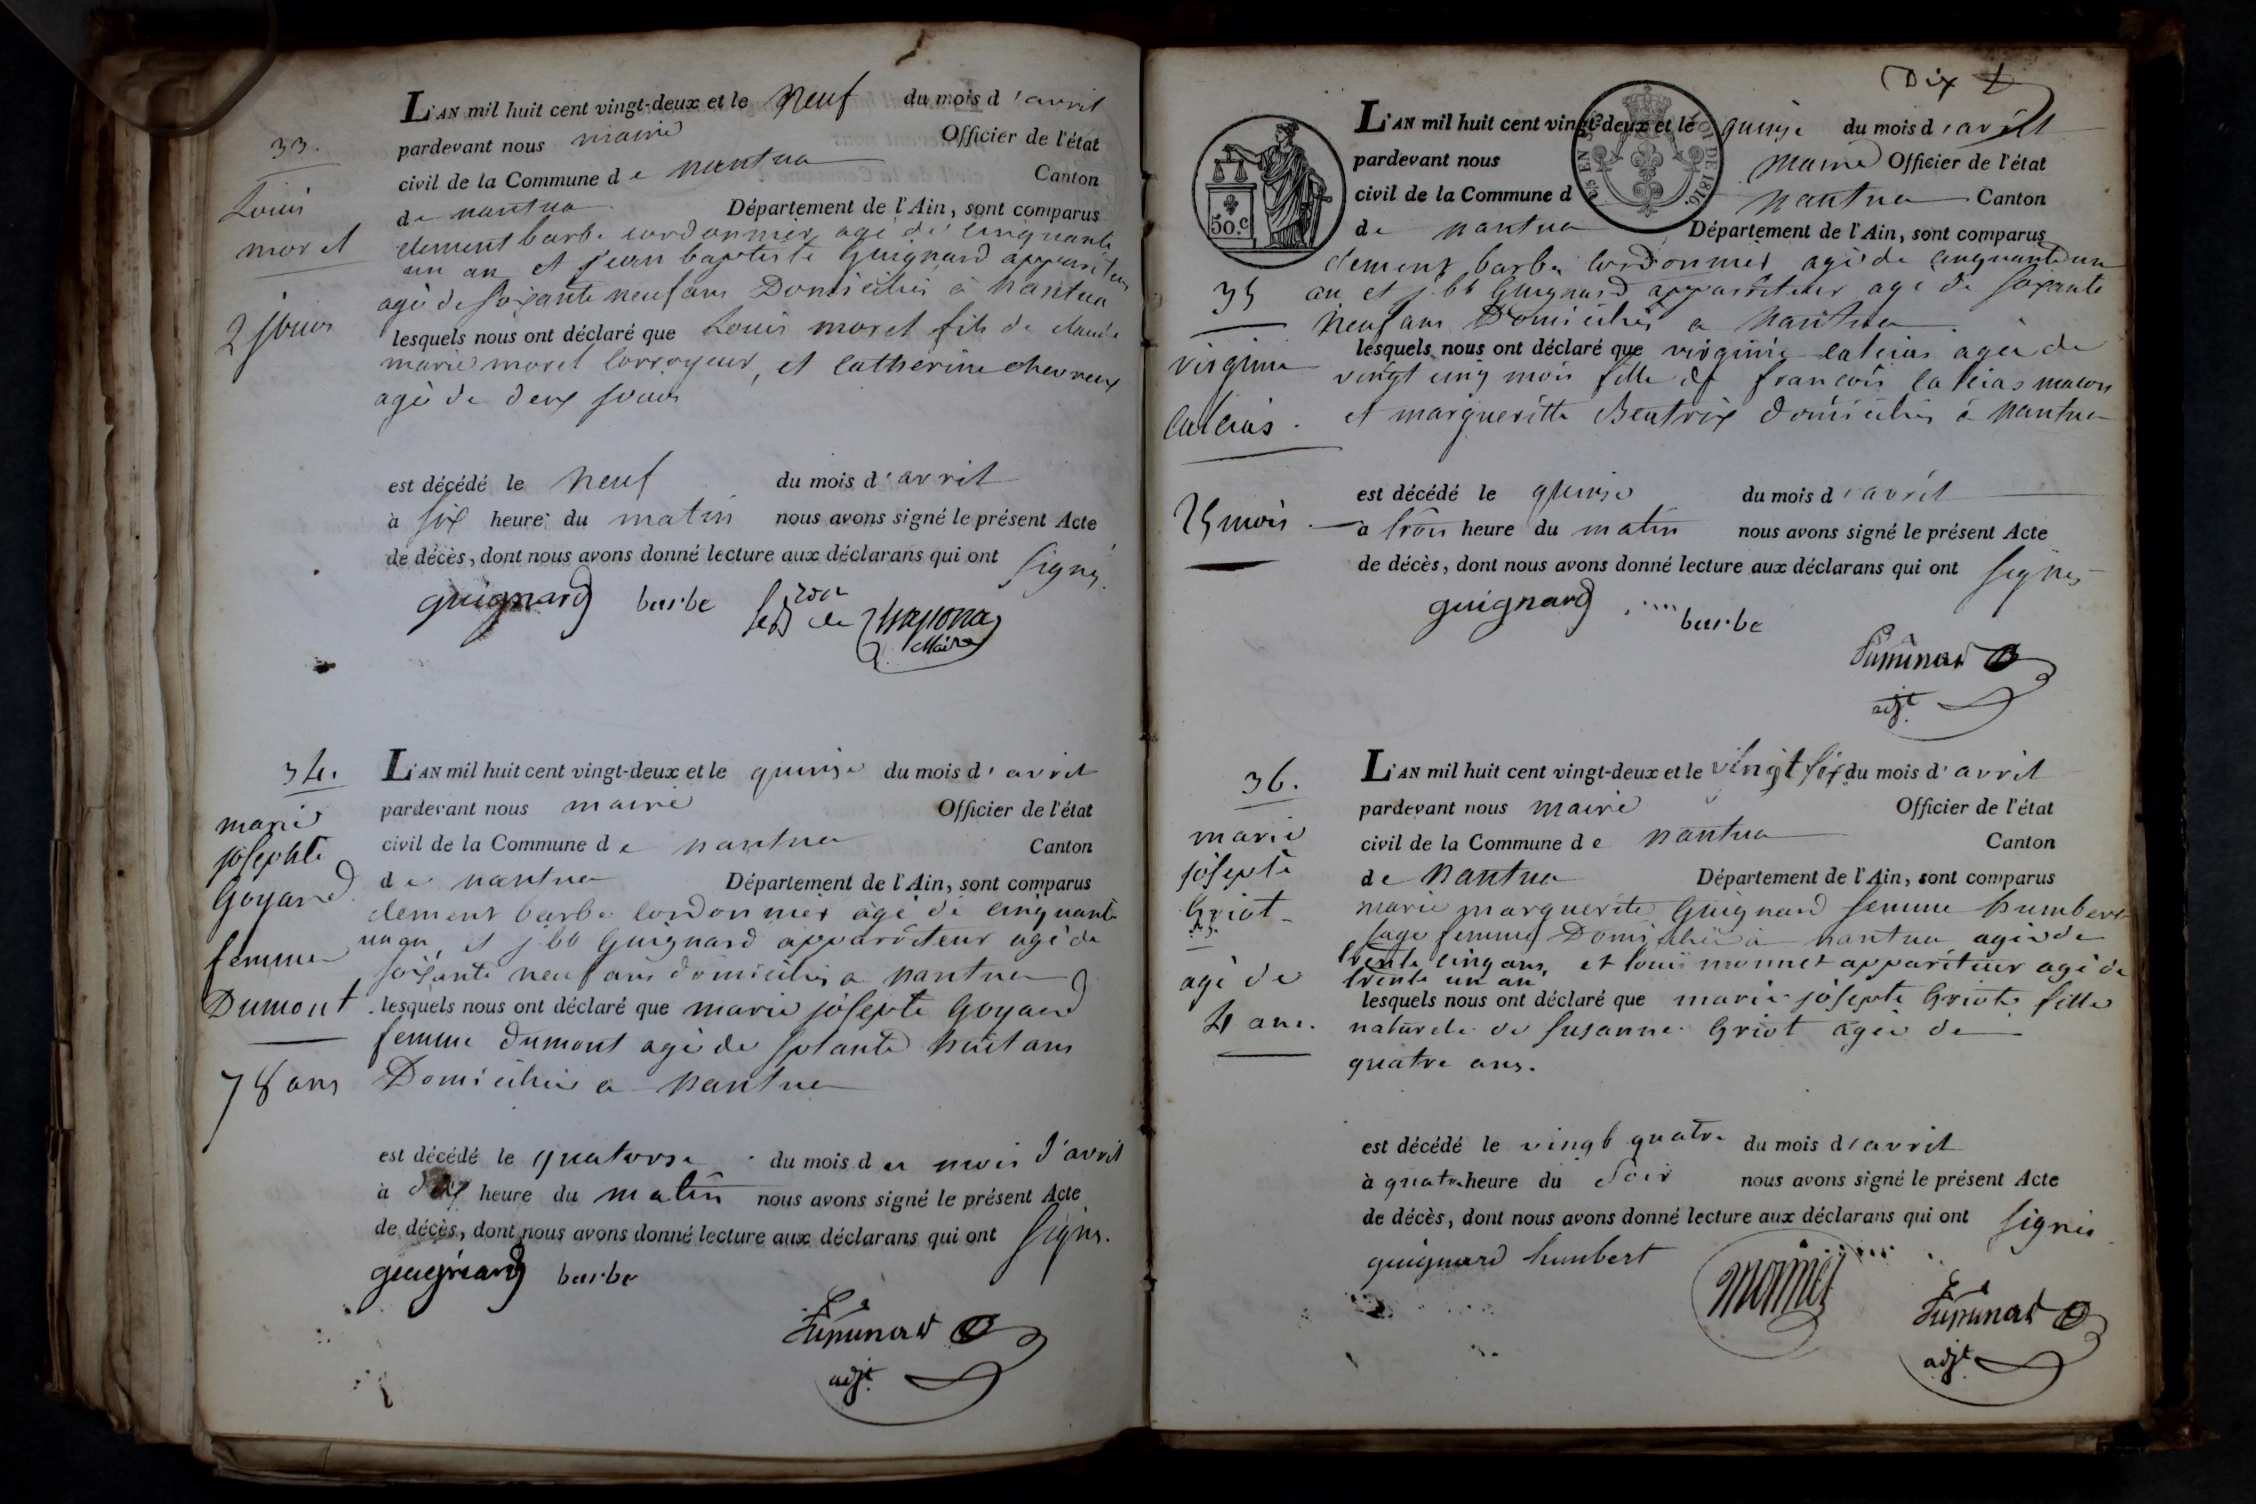 33.
Louis
moret
2 jours
L'AN mil huit cent vingt-deux et le neuf du mois d'avril
pardevant nous maire Officier de l'état
civil de la Commune de nantua Canton
de nantua Département de l'Ain, sont comparus
clement barbe cordonnier agé de cinquante
un an et jean baptiste Guignard appariteur
agé de soixante neuf ans Domiciliés à nantua
lesquels nous ont déclaré que Louis moret fils de claude
marie moret corroyeur, et catherine chevreux
agé de deux jours
est décédé le neuf du mois d'avril
à six heure du matin nous avons signé le présent Acte
de décès, dont nous avons donné lecture aux déclarans qui ont signés.
guignard barbe
Maire
34.
marie
josephte
Goyard
femme
Dumont
78 ans
L'AN mil huit cent vingt-deux et le quinze du mois d'avril
pardevant nous maire Officier de l'état
civil de la Commune de nantua Canton
de nantua Département de l'Ain, sont comparus
clement barbe cordonnier agé de cinquante
un an, et j btt Guignard appariteur agé de
soixante neuf ans domiciliés a nantua
lesquels nous ont déclaré que marie josepte Goyard
femme dumont agé de huit ans
Domiciliée a nantua
est décédé le quatorze du mois d mois d'avril
à dix heure du matin nous avons signé le présent Acte
de décès, dont nous avons donné lecture aux déclarans qui ont signés.
guignard barbe
adjt
Dix
50.C
LOI DE 1816.
35
virginie
caleias.
25 mois
L'AN mil huit cent vingt-deux et le quinze du mois d'avril
pardevant nous maire Officier de l'état
civil de la Commune d nantua Canton
de nantua Département de l'Ain, sont comparus
clement barbe cordonnier agé de cinquante un
an et j btt Guignard appariteur agé de soixante
neuf ans Domiciliés a nantua.
lesquels nous ont déclaré que virginie caleias agée de
vingt cinq mois fille de francois caleias macon
et margueritte Beatrix domiciliés à nantua
est décédé le quinze du mois d'avril
à trois heure du matin nous avons signé le présent Acte
de décès, dont nous avons donné lecture aux déclarans qui ont signés
guignard barbe
adjt
36.
marie
josepte
Griot
agé de
4 ans.
L'AN mil huit cent vingt-deux et le vingt six du mois d'avril
pardevant nous maire Officier de l'état
civil de la Commune de nantua Canton
de nantua Département de l'Ain, sont comparus
marie marguerite Guignard femme humbert
sage femme Domiciliée à nantua agée de
trente cinq ans, et louis monnet appariteur agé de
trente un an
lesquels nous ont déclaré que marie josepte Griot fille
naturele de Susanne Griot agée de
quatre ans.
est décédé le vingt quatre du mois d'avril
à quatre heure du soir nous avons signé le présent Acte
de décès, dont nous avons donné lecture aux déclarans qui ont signés
guignard humbert monnet
adjt